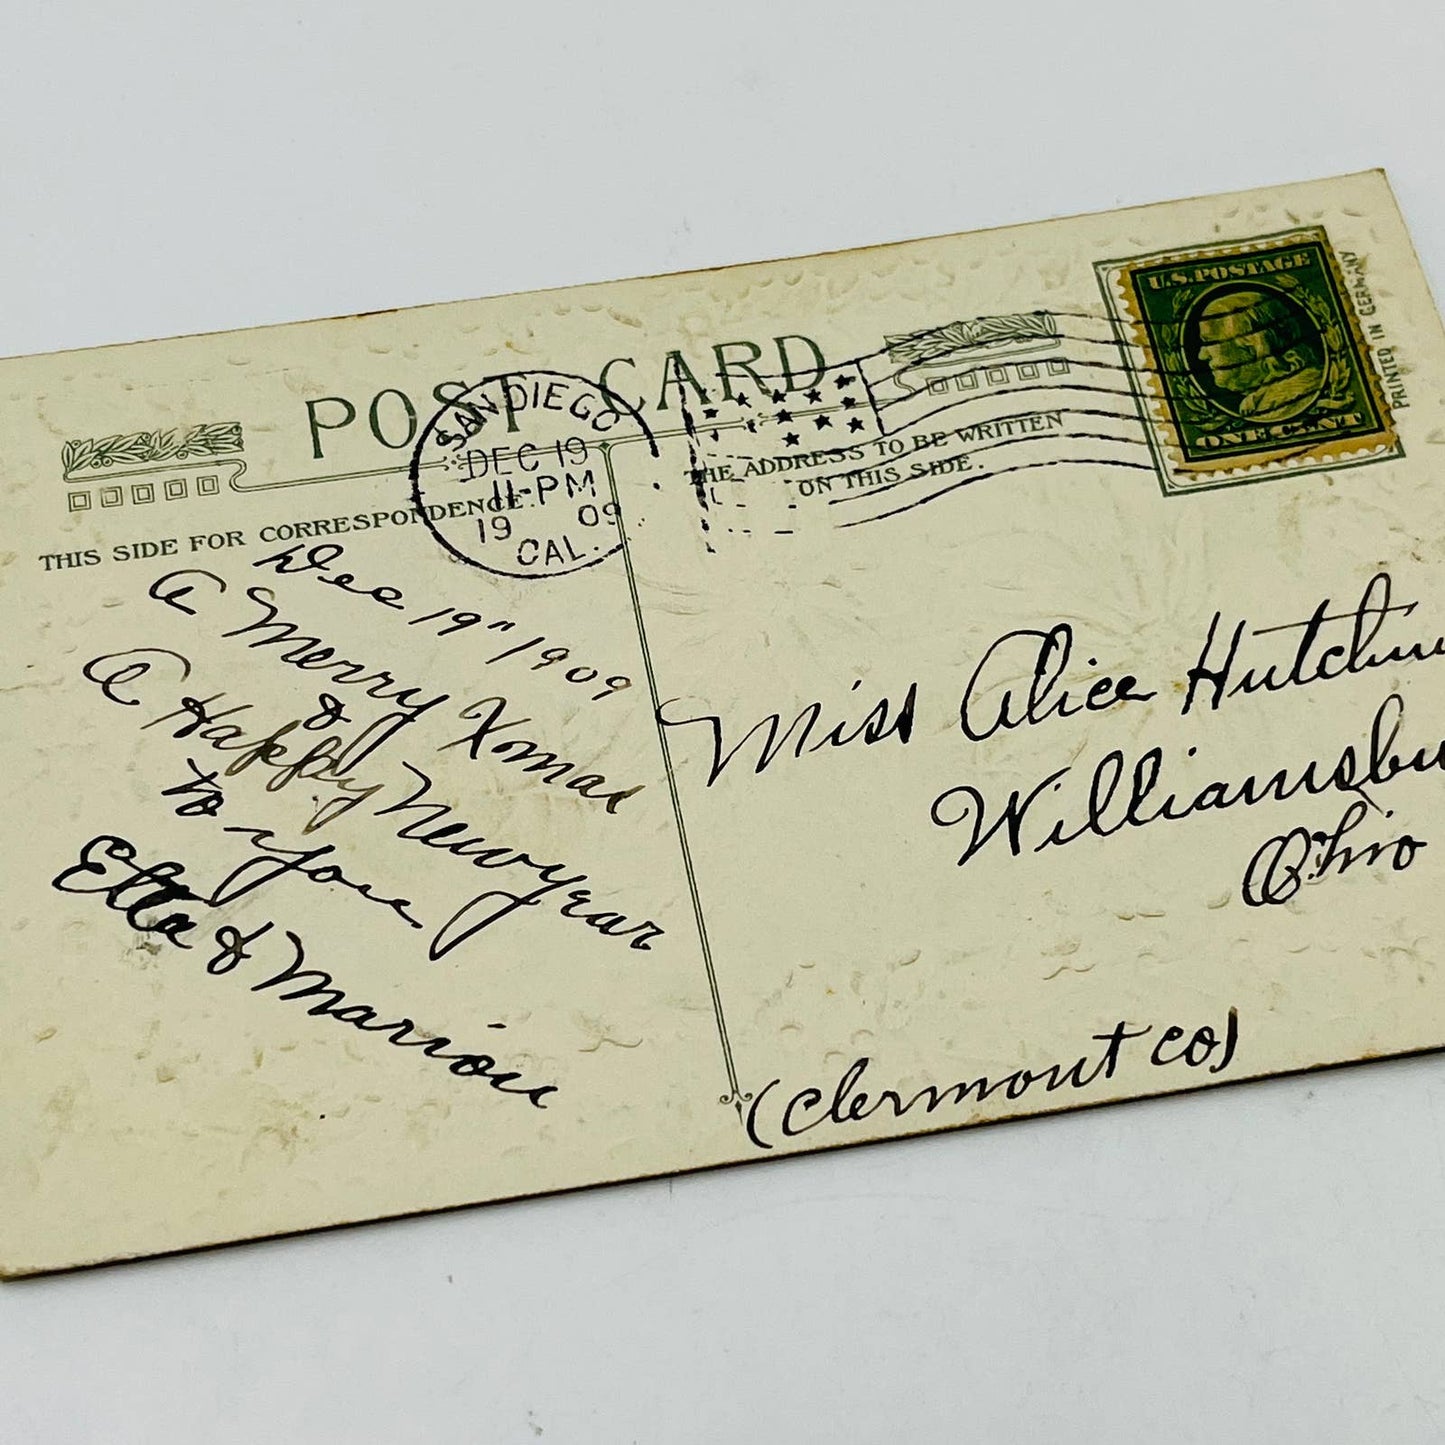 POST CARD
SAN DIEGO
DEC 19
11-PM
19 09
CAL.
U.S. POSTAGE
ONE CENT
PRINTED IN GERMANY
THE ADDRESS TO BE WRITTEN
ON THIS SIDE.
THIS SIDE FOR CORRESPONDENCE.
Dec 19" 1909
A Merry Xmas
&
A Happy New year
to you
Ella & Marion
Miss Alice
Ohio
(Clermont Co)